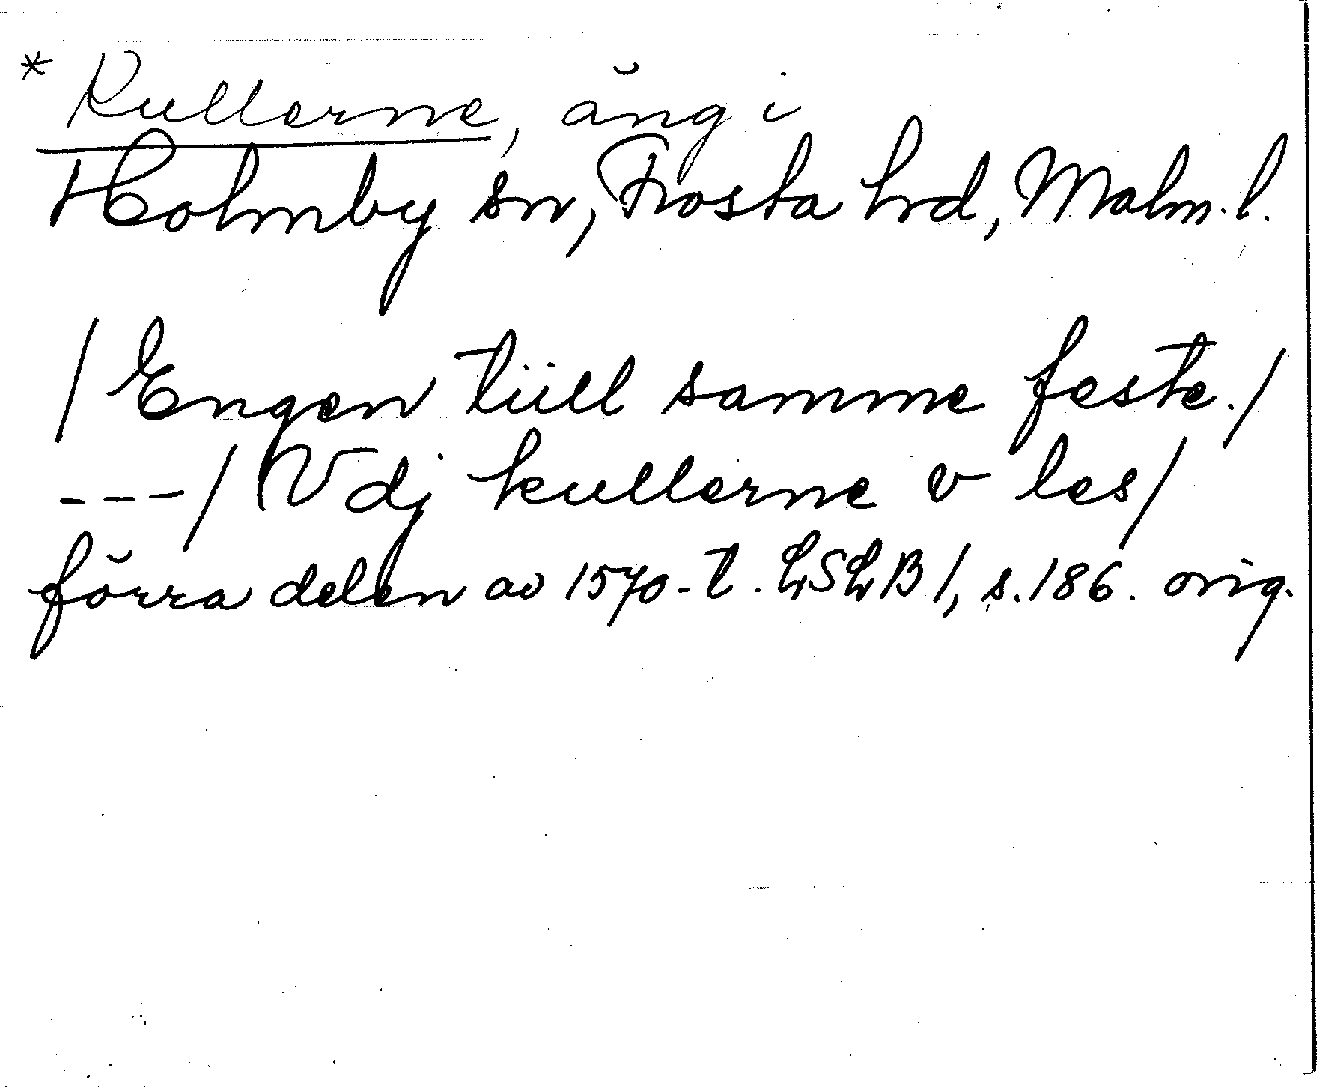 * Kullerne, äng i
Holmby sn, Frosta hrd, Malm. l.
/ Engen tiill samme feste. /
--- / Vdj kullerne v les /
förra delen av 1570-t. LSLB 1, s. 186. orig.